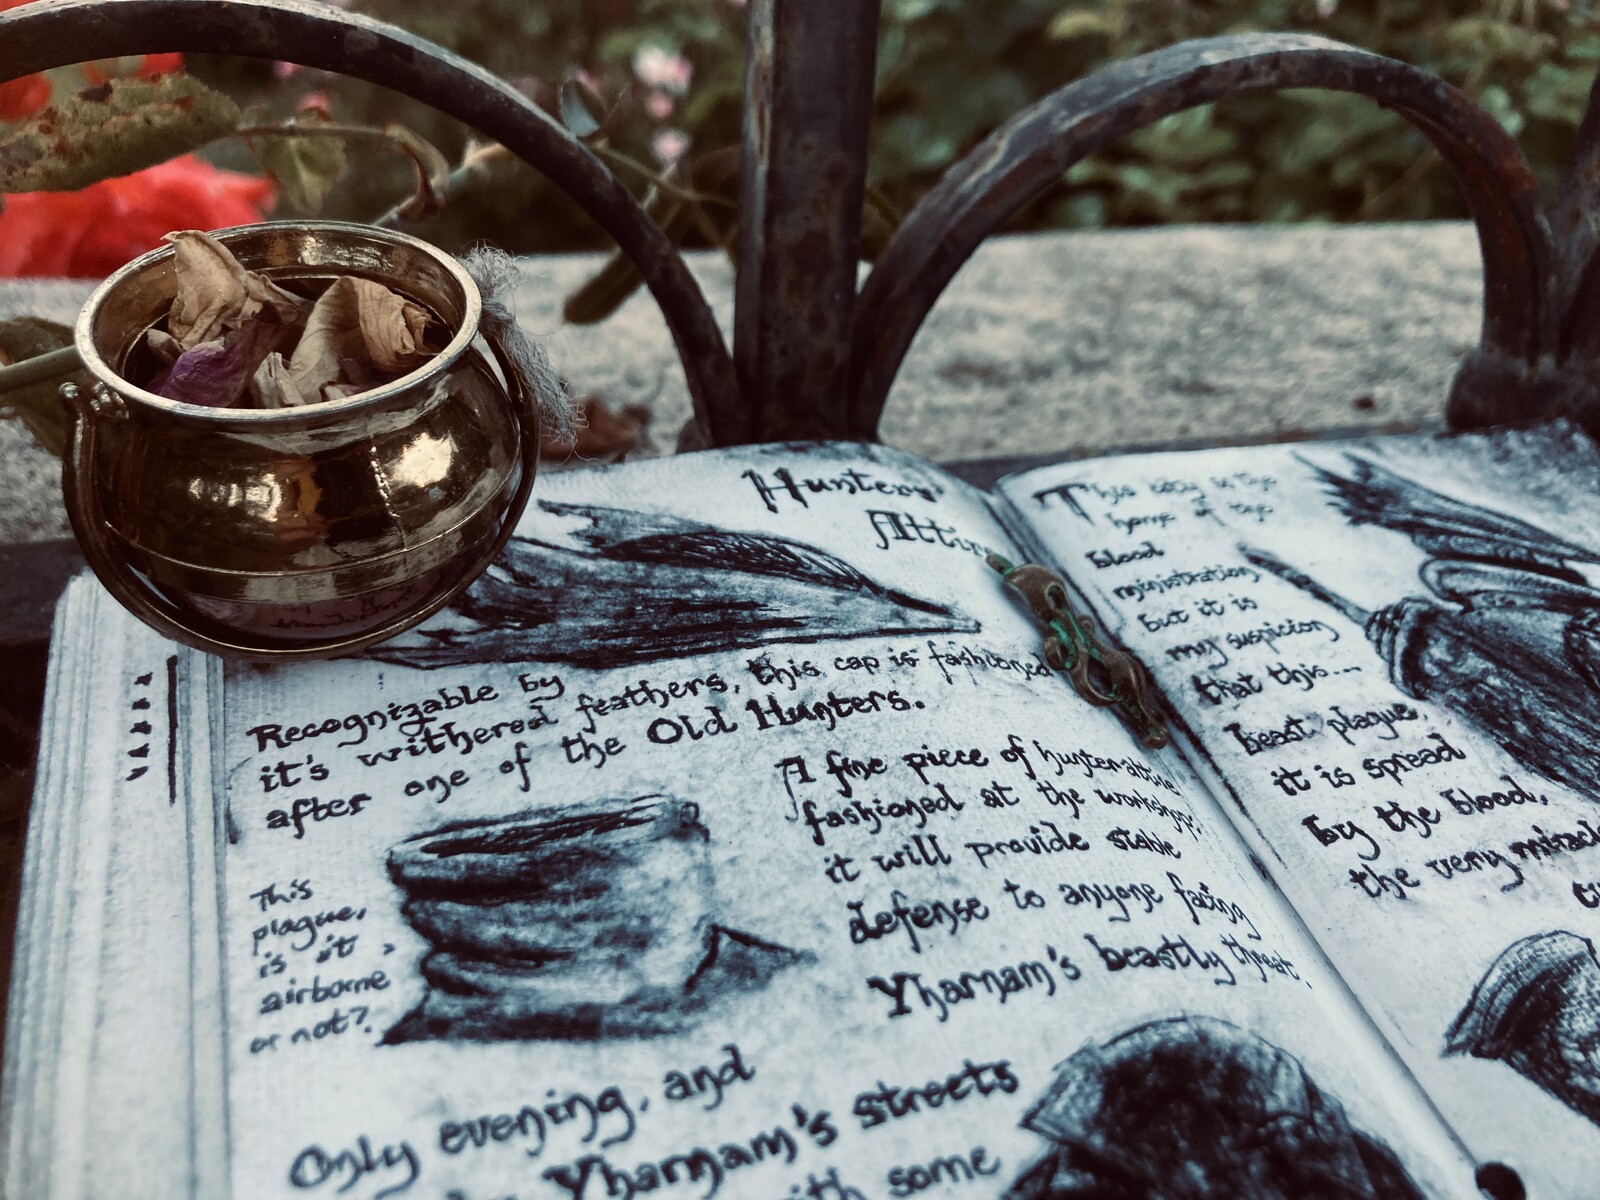 Hunters'
Attire
Recognizable by
it's withered feathers, this cap is fashioned
after one of the Old Hunters.
A fine piece of hunter attire
fashioned at the workshop;
it will provide stable
defense to anyone facing
Yharnam's beastly threat.
This
plague,
is it
airborne
or not?
Only evening, and
Yharnam's streets
with some
This city is the
home of the
blood
ministration,
but it is
my suspicion
that this...
beast plague,
it is spread
by the blood,
the very